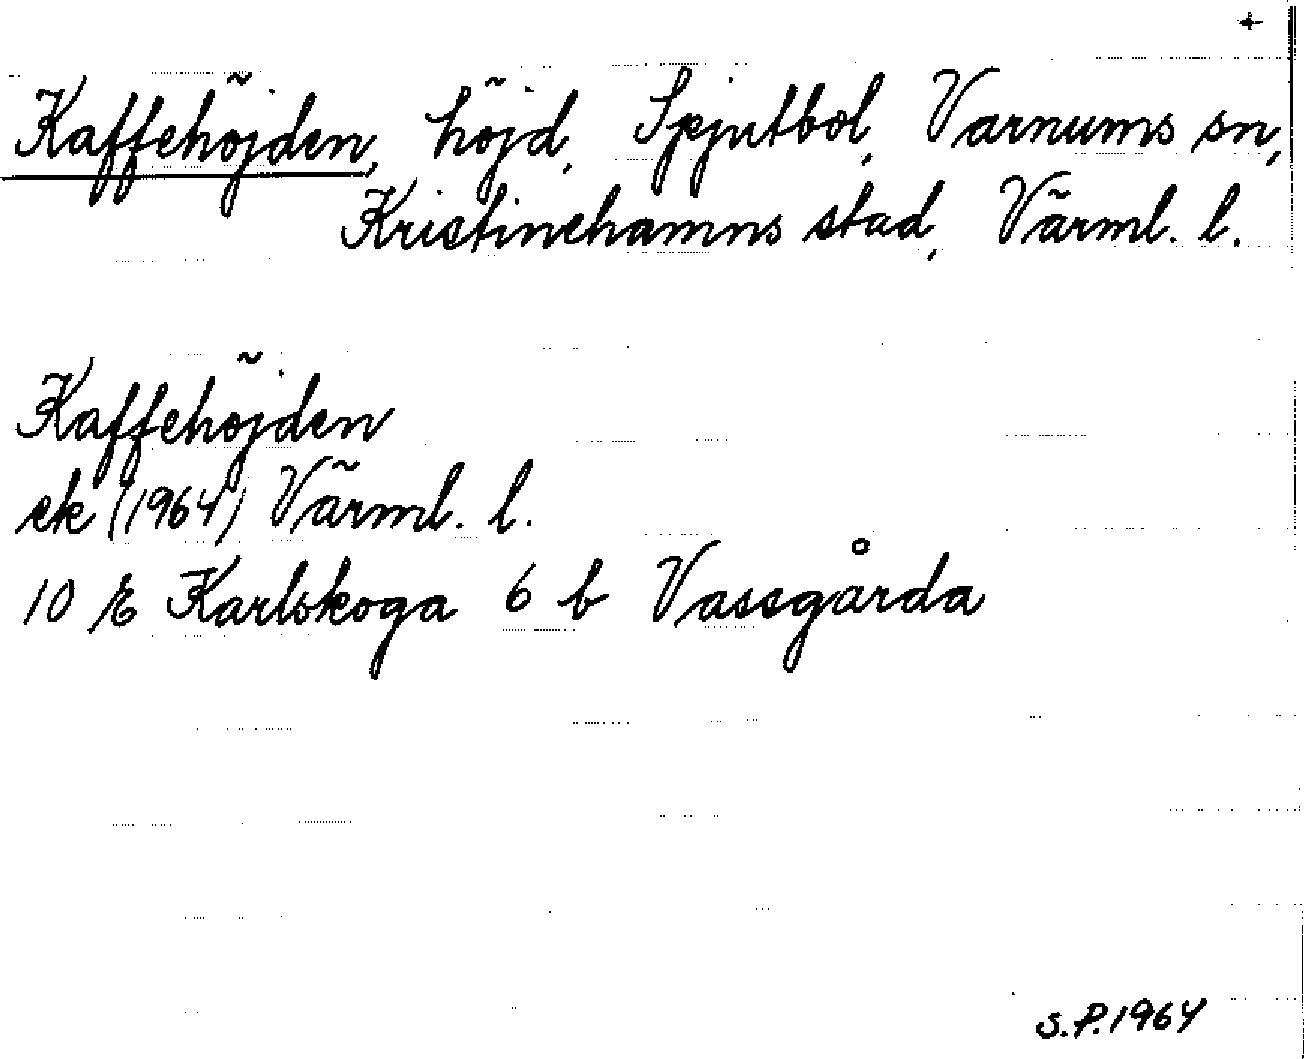 +
Kaffehöjden, höjd, Spjutbol, Varnums sn,
Kristinehamns stad, Värml. l.
Kaffehöjden
ek (1964) Värml. l.
10 E Karlskoga 6 b Vassgårda
S.P. 1964